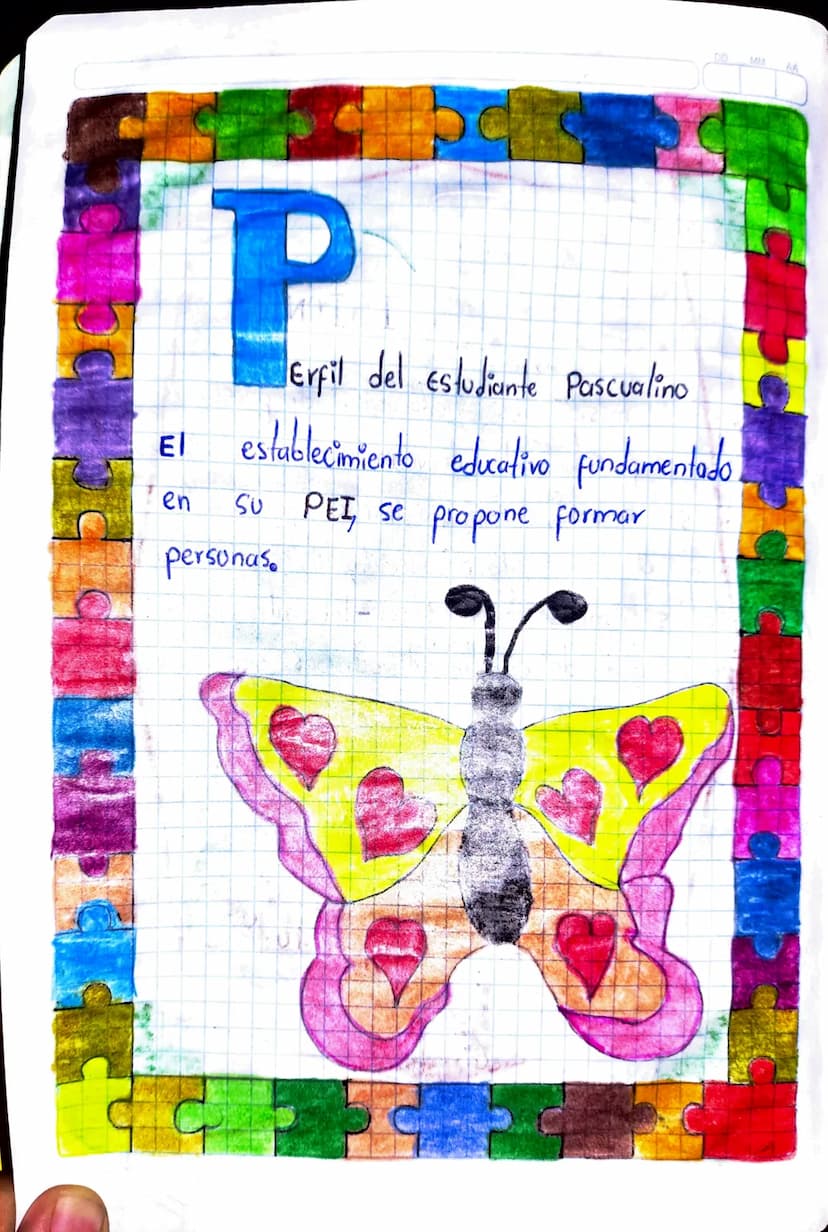 DD MM AA
PErfil del Estudiante Pascualino
El establecimiento educativo fundamentado
en su PEI, se propone formar
personas.